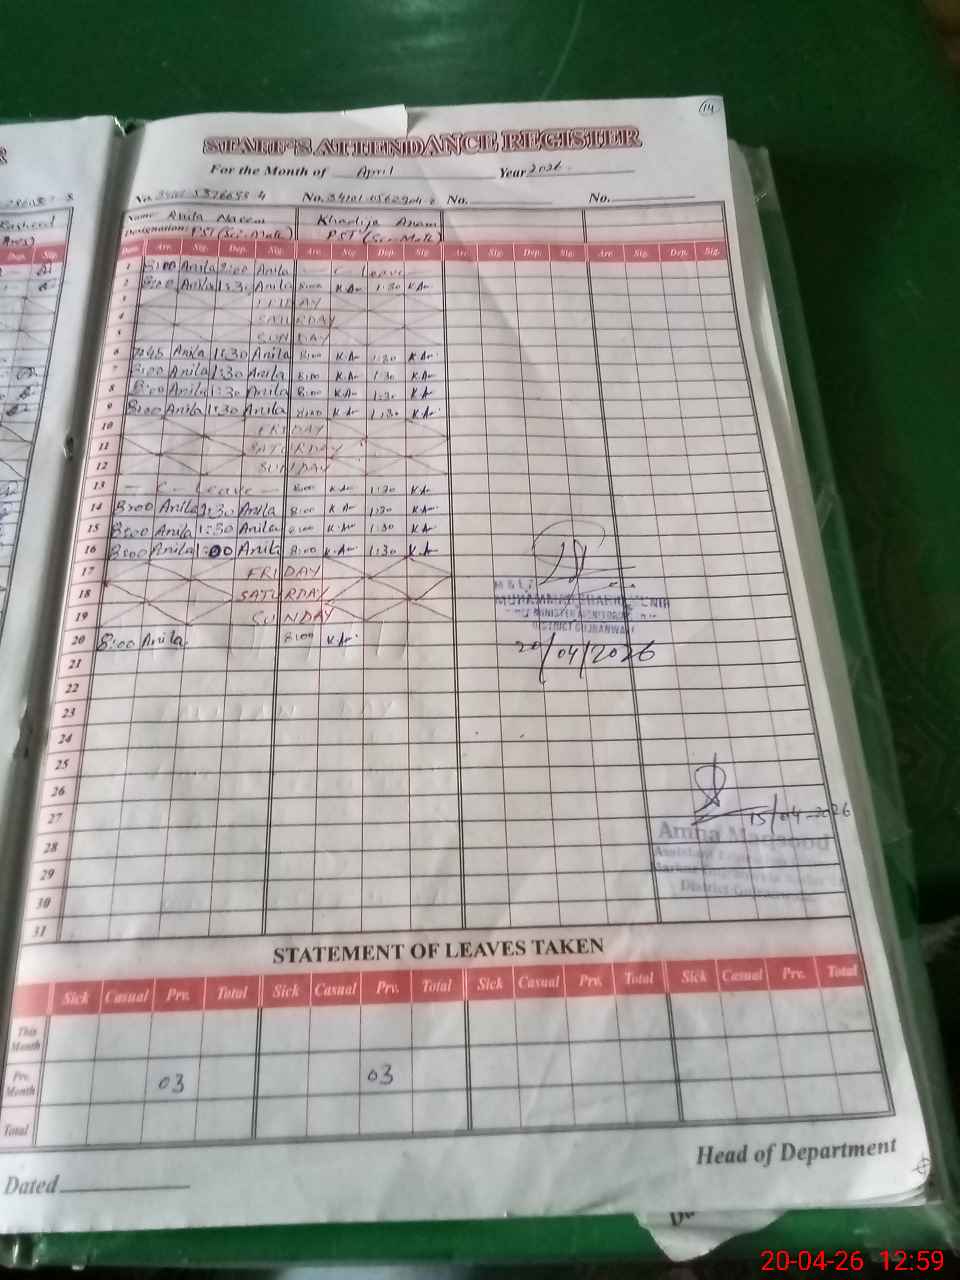 14
STAFF'S ATTENDANCE REGISTER
For the Month of April Year 2026
No. No. No. No.
Name Anita Naeem Khadija Anam
Designation PST (Sci-Math) PST (Sci-Math)
Date Arr. Sig. Dep. Sig. Arr. Sig. Dep. Sig. Arr. Sig. Dep. Sig. Arr. Sig. Dep. Sig.
1 8:00 Anila 8:00 Anila - C - Leave -
2 8:00 Anila 1:30 Anila 8:00 K.Ar 1:30 K.Ar
3 FRIDAY
4 SATURDAY
5 SUNDAY
6 7:45 Anila 1:30 Anila 8:00 K.Ar 1:30 K.Ar
7 8:00 Anila 1:30 Anila 8:00 K.Ar 1:30 K.Ar
8 8:00 Anila 1:30 Anila 8:00 K.Ar 1:30 K.Ar
9 8:00 Anila 1:30 Anila 8:00 K.Ar 1:30 K.Ar
10 FRIDAY
11 SATURDAY
12 SUNDAY
13 - C - Leave - 8:00 K.Ar 1:30 K.Ar
14 8:00 Anila 1:30 Anila 8:00 K.Ar 1:30 K.Ar
15 8:00 Anila 1:30 Anila 8:00 K.Ar 1:30 K.Ar
16 8:00 Anila 1:00 Anila 8:00 K.Ar 1:30 K.Ar
17 FRIDAY
18 SATURDAY
19 SUNDAY
20 8:00 Anila 8:00 K.Ar
M & E
MUHAMMAD
DISTRICT GUJRANWALA
20/04/2026
21
22
23
24
25
26
27
28
29
30
31
15/04-2026
Amna Maqsood
Assistant Education
District Gujranwala
STATEMENT OF LEAVES TAKEN
Sick Casual Prv. Total Sick Casual Prv. Total Sick Casual Prv. Total Sick Casual Prv. Total
This Month
Prv. Month 03 03
Total
Head of Department
Dated
20-04-26 12:59